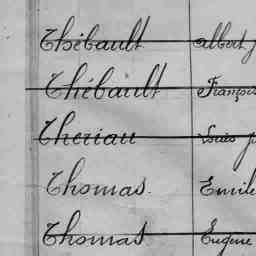 Thébault Albert
Thébault François
Theriau Louis
Thomas. Emile
Thomas Eugène